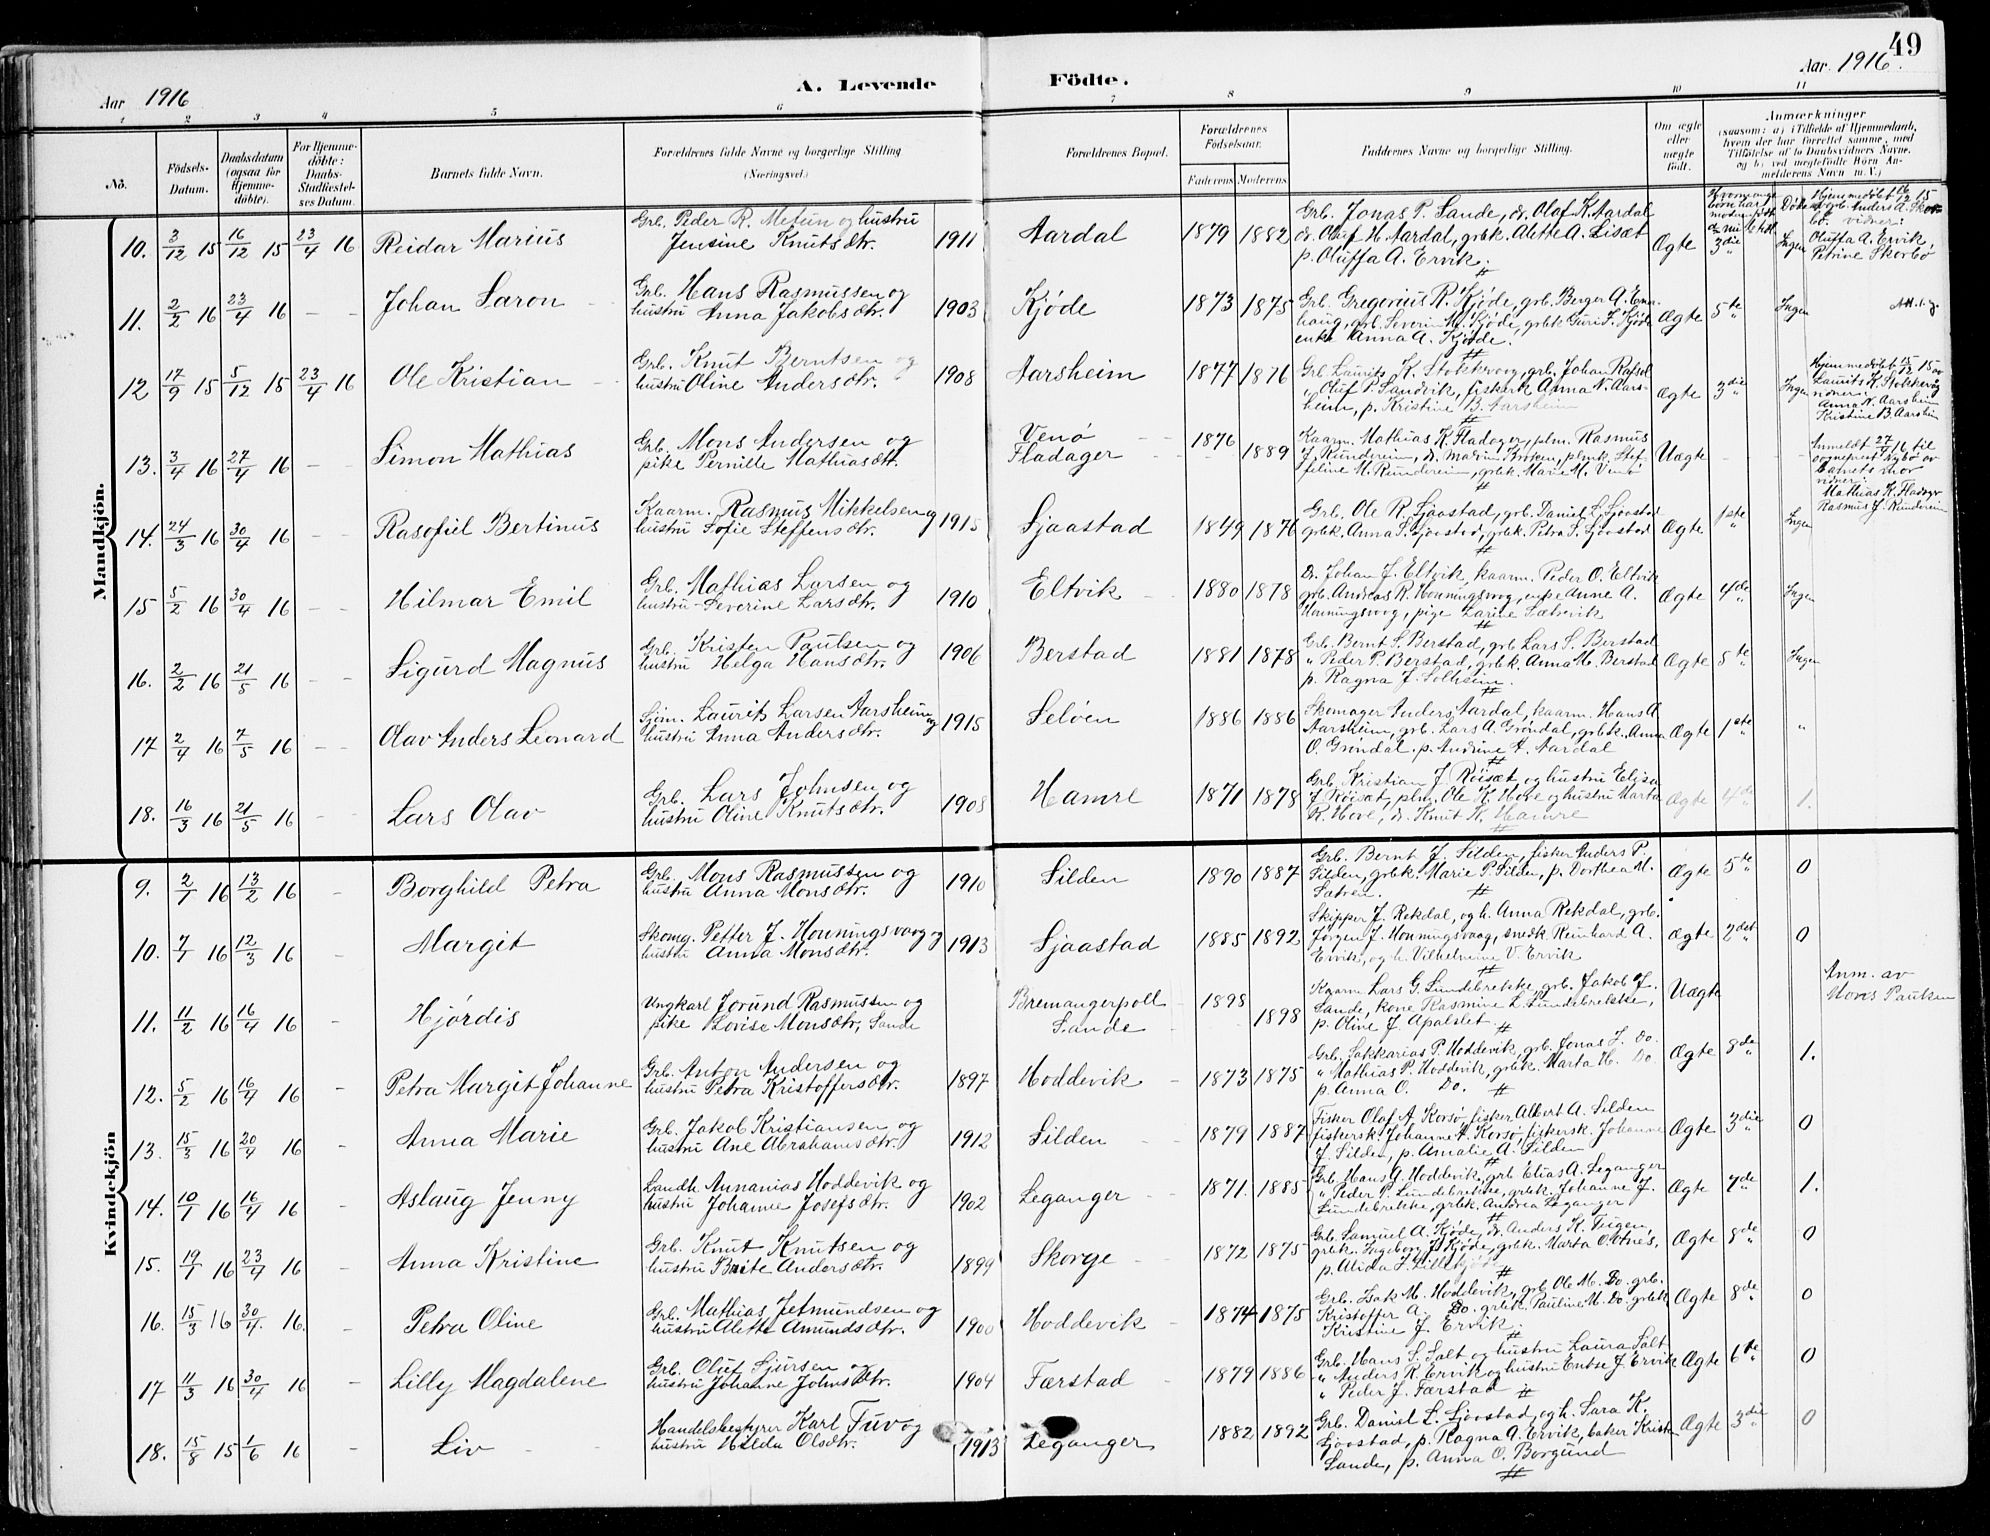 49
Aar 1916
A. Levende Födte.
Aar 1916.
1 2 3 4 5 6 7 8 9 10 11
No. Födsels-Datum. Daabsdatum (ogsaa for Hjemmedöbte). For Hjemmedöbte: Daabs-Stadfæstelses Datum. Barnets fulde Navn. Forældrenes fulde Navne og borgerlige Stilling (Næringsvei.) Forældrenes Bopæl. Forældrenes Födselsaar. Faderens Moderens Faddernes Navne og borgerlige Stilling. Om ægte eller uægte født. Anmærkninger (saasom: a) i Tilfælde af Hjemmedaab, hvem der har forrettet samme, med Tilföielse af to Daabsvidners Navne, og b) ved uægtefödte Börn Anmelderens Navn m. V.)
Mandkjön.
10. 3/12 15 16/12 15 23/4 16 Reidar Marius Grb. Peder R. Melun og hustru
Jensine Knutsdtr. 1911 Aardal 1879 1882 Grb. Jonas P. Sande, dr. Olaf K. Aardal
dr. Oluf H. Aardal, grbk. Alette A. Lisæt
p. Oluffa A. Ervik. Ægte 3die Ingen Hjemmedøbt 16/12 15
av grb. Anders A. Skorbø
vidner:
Oluffa A. Ervik,
Petrine Skorbø
11. 2/2 16 23/4 16 – – Johan Saron Grb. Hans Rasmussen og
hustru Anna Jakobsdtr. 1903 Kjøde 1873 1875 Grb. Gregorius R. Kjøde, grb. Berger A. Ema-
haug, grb. Severin M. Kjøde, grbk. Guri J. Kjøde
enke Anna A. Kjøde. Ægte 5te Ingen
12 17/9 15 5/12 15 23/4 16 Ole Kristian Grb. Knut Berntsen og
hustru Oline Andersdtr. 1908 Aarsheim 1877 1876 Grb. Laurits K. Stokkevog, grb. Johan Rafsel
" Oluf P. Sandvik, fiskerk Anna N. Aars-
heim, p. Kristine B. Aarsheim Ægte 3die Ingen Hjemmedøbt 15/12 15 av
Laurits K. Stokkevog
vidner:
Anna N. Aarsheim
Kristine B. Aarsheim
13. 3/4 16 27/4 16 – – Simon Mathias Grb. Mons Andersen og
pike Pernille Mathiasdtr. Venø
Fladager 1876 1889 Kaarm. Mathias K. Fladager, plm. Rasmus
J. Runderein, d. Malvin Kroken, plmk. Stef-
feline M. Runderein, grbk. Marie M. Venø Uægte Anmeldt 27/4 16 til
sogneprest Nybø av
barnets mor
vidner:
Mathias K. Fladager
Rasmus J. Runderein
14. 24/3 16 30/4 16 – – Rasofiel Bertinus Kaarm. Rasmus Mikkelsen og
hustru Sofie Steffensdtr. 1915 Sjaastad 1849 1876 Grb. Ole R. Sjaastad, grb. Daniel L. Sjaastad
grbk. Anna S. Sjaastad, grbk. Petra S. Sjaastad Ægte 1ste Ingen
15 5/2 16 30/4 16 – – Hilmar Emil Grb. Mathias Larsen og
hustru Severine Larsdtr. 1910 Eltvik 1880 1878 Dr. Johan J. Eltvik, kaarm. Peder O. Eltvik
grb. Andreas R. Honningsvog, enke Anne A.
Honningsvog, pige Larine Sætrevik Ægte 4de Ingen
16. 2/2 16 21/5 16 – – Sigurd Magnus Grb. Kristen Paulsen og
hustru Helga Hansdtr. 1906 Berstad 1881 1878 Grb. Bernt S. Berstad, grb Lars S. Berstad
" Peder P. Berstad, grbk. Anna M. Berstad
p. Ragna J. Solheim. Ægte 5te Ingen
17 2/4 16 7/5 16 – – Olav Anders Leonard Sjøm. Laurits Larsen Aarsheim og
hustru Anna Andersdtr. 1915 Seløen 1886 1886 Skomager Anders Aardal, kaarm. Hans A.
Aarsheim, grb. Lars A. Grøndal, grbk. Anna
O. Grøndal, p. Andrine A. Aardal Ægte 1ste "
18. 16/3 16 21/5 16 – – Lars Olav Grb. Lars Johnsen og
hustru Oline Knutsdtr. 1908 Hamre 1871 1878 Grb. Kristian J. Røisæt og hustru Elisa
J. Røisæt, plm. Ole K. Hove og hustru Marta
R. Hove, d. Knut K. Hamre Ægte 4de 1.
Kvindekjön
9. 2/1 16 13/2 16 – Borghild Petra Grb. Mons Rasmussen og
hustru Anna Monsdtr. 1910 Silden 1890 1887 Grb. Bernt J. Silden, fisker Anders P.
Silden, grbk. Marie P. Silden, p. Dorthea M.
Sætren. Ægte 5te 0
10. 7/1 16 12/3 16 – Margit Skomg. Petter J. Honningsvaag og
hustru Anna Monsdtr. 1913 Sjaastad 1885 1892 Skipper J. Rekdal, og h. Anna Rekdal, grb.
Jørgen J. Honningsvaag, snedk Reinhard A.
Ervik, og h. Vilhelmine V. Ervik Ægte 2det 0
11. 11/2 16 16/4 16 – Hjørdis Ungkarl Jorund Rasmussen og
pike Lovise Monsdtr, Sande Bremangerpoll
Sande 1898 1898 Kaarm Lars G. Lundebrekke, grb. Jakob J.
Sande, kone Rasmine L. Lundebrekke,
p. Oline J. Apalset. Uægte Anm. av
Mons Paulsen
12. 5/2 16 16/4 16 – Petra Margit Johanne Grb. Anton Andersen og
hustru Petra Kristoffersdtr. 1897 Hoddevik 1873 1875 Grb. Sakkarias P. Hoddevik, grb. Jonas J. Do.
" Mathias P. Hoddevik, grbk. Marta H. Do
p. Anna O. Do. Ægte 8de 1.
13. 15/3 16 20/4 16 – Anna Marie Grb. Jakob Kristiansen og
hustru Ane Abrahamsdtr. 1912 Silden 1879 1887 Fisker Olaf A. Korsø, fisker Albert A. Silden
fiskersk. Johanne A. Korsø, fiskersk. Johanne
J. Silden, p. Amalie A. Silden Ægte 3die 0
14. 10/1 16 16/4 16 – Aslaug Jenny Landh. Annanias Hoddevik og
hustru Johanne Josefsdtr. 1902 Leganger 1871. 1885 Grb. Hans A. Hoddevik, grb Elias A. Leganger
" Peder P. Lundebrekke, grbk. Johanne J.
Lundebrekke, grbk. Andrea Leganger Ægte 7de 1.
15. 19/1 16 23/4 16 – Anna Kristine Grb. Knut Knutsen og
hustru Brite Andersdtr. 1899 Skorge 1872 1875 Grb. Samuel A. Kjøde, dr. Anders K. Tugen,
grbk. Ingeborg J. Kjøde, grbk. Marta O. Otnes,
p. Alida J. Lillekjøde Ægte 8de 0
16. 15/3 16 30/4. 16. – Petra Oline Grb. Mathias Jetmundsen og
hustru Alette Amundsdtr. 1900 Hoddevik 1874 1875 Grb. Isak M. Hoddevik, grb. Ole M. Do. grb.
Kristoffer A. Do. grbk. Pauline M. Do. grbk
Kristine J. Ervik. Ægte 8de 0
17 11/3 16 30/4 16 – Lilly Magdalene Grb. Oluf Sjursen og
hustru Johanne Johnsdtr. 1904 Færstad 1879 1886 Grb. Hans S. Salt og hustru Laura Salt
" Anders R. Ervik og hustru Entse J. Ervik
" Peder J. Færstad Ægte 6te 0
18. 15/8 15 1/6 16 – Liv Handelsbestyrer Karl Tuv og
hustru Hilda Olsdtr. 1913 Leganger 1882 1892 Grb. Daniel L. Sjaastad, og h. Sara K.
Sjaastad, p. Ragna A. Ervik, baker Kristen
Sande, p. Anna O. Borgund Ægte 3die 0